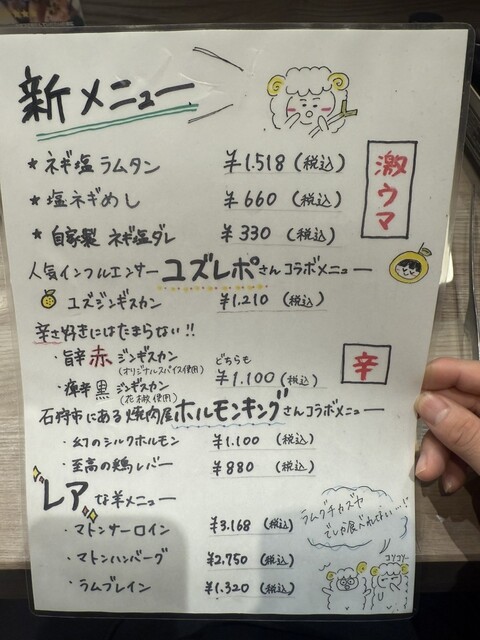 新メニュー
★ ネギ塩ラムタン ¥1.518 (税込)
★ 塩ネギめし ¥660 (税込)
★ 自家製 ネギ塩ダレ ¥330 (税込)
激ウマ
人気インフルエンサー ユズレポさんコラボメニュー
ユズジンギスカン ¥1.210 (税込)
辛さ好きにはたまらない!!
・旨辛 赤 ジンギスカン
(オリジナルスパイス使用)
・痺辛 黒 ジンギスカン
(花椒使用)
どちらも
¥1.100 (税込)
辛
石狩市にある焼肉屋ホルモンキングさんコラボメニュー
・幻のシルクホルモン ¥1.100 (税込)
・至高の鶏レバー ¥880 (税込)
レアな羊メニュー
・マトンサーロイン ¥3.168 (税込)
・マトンハンバーグ ¥2.750 (税込)
・ラムブレイン ¥1.320 (税込)
ラムグチカズヤ
でしか食べれない…!
コソコソ